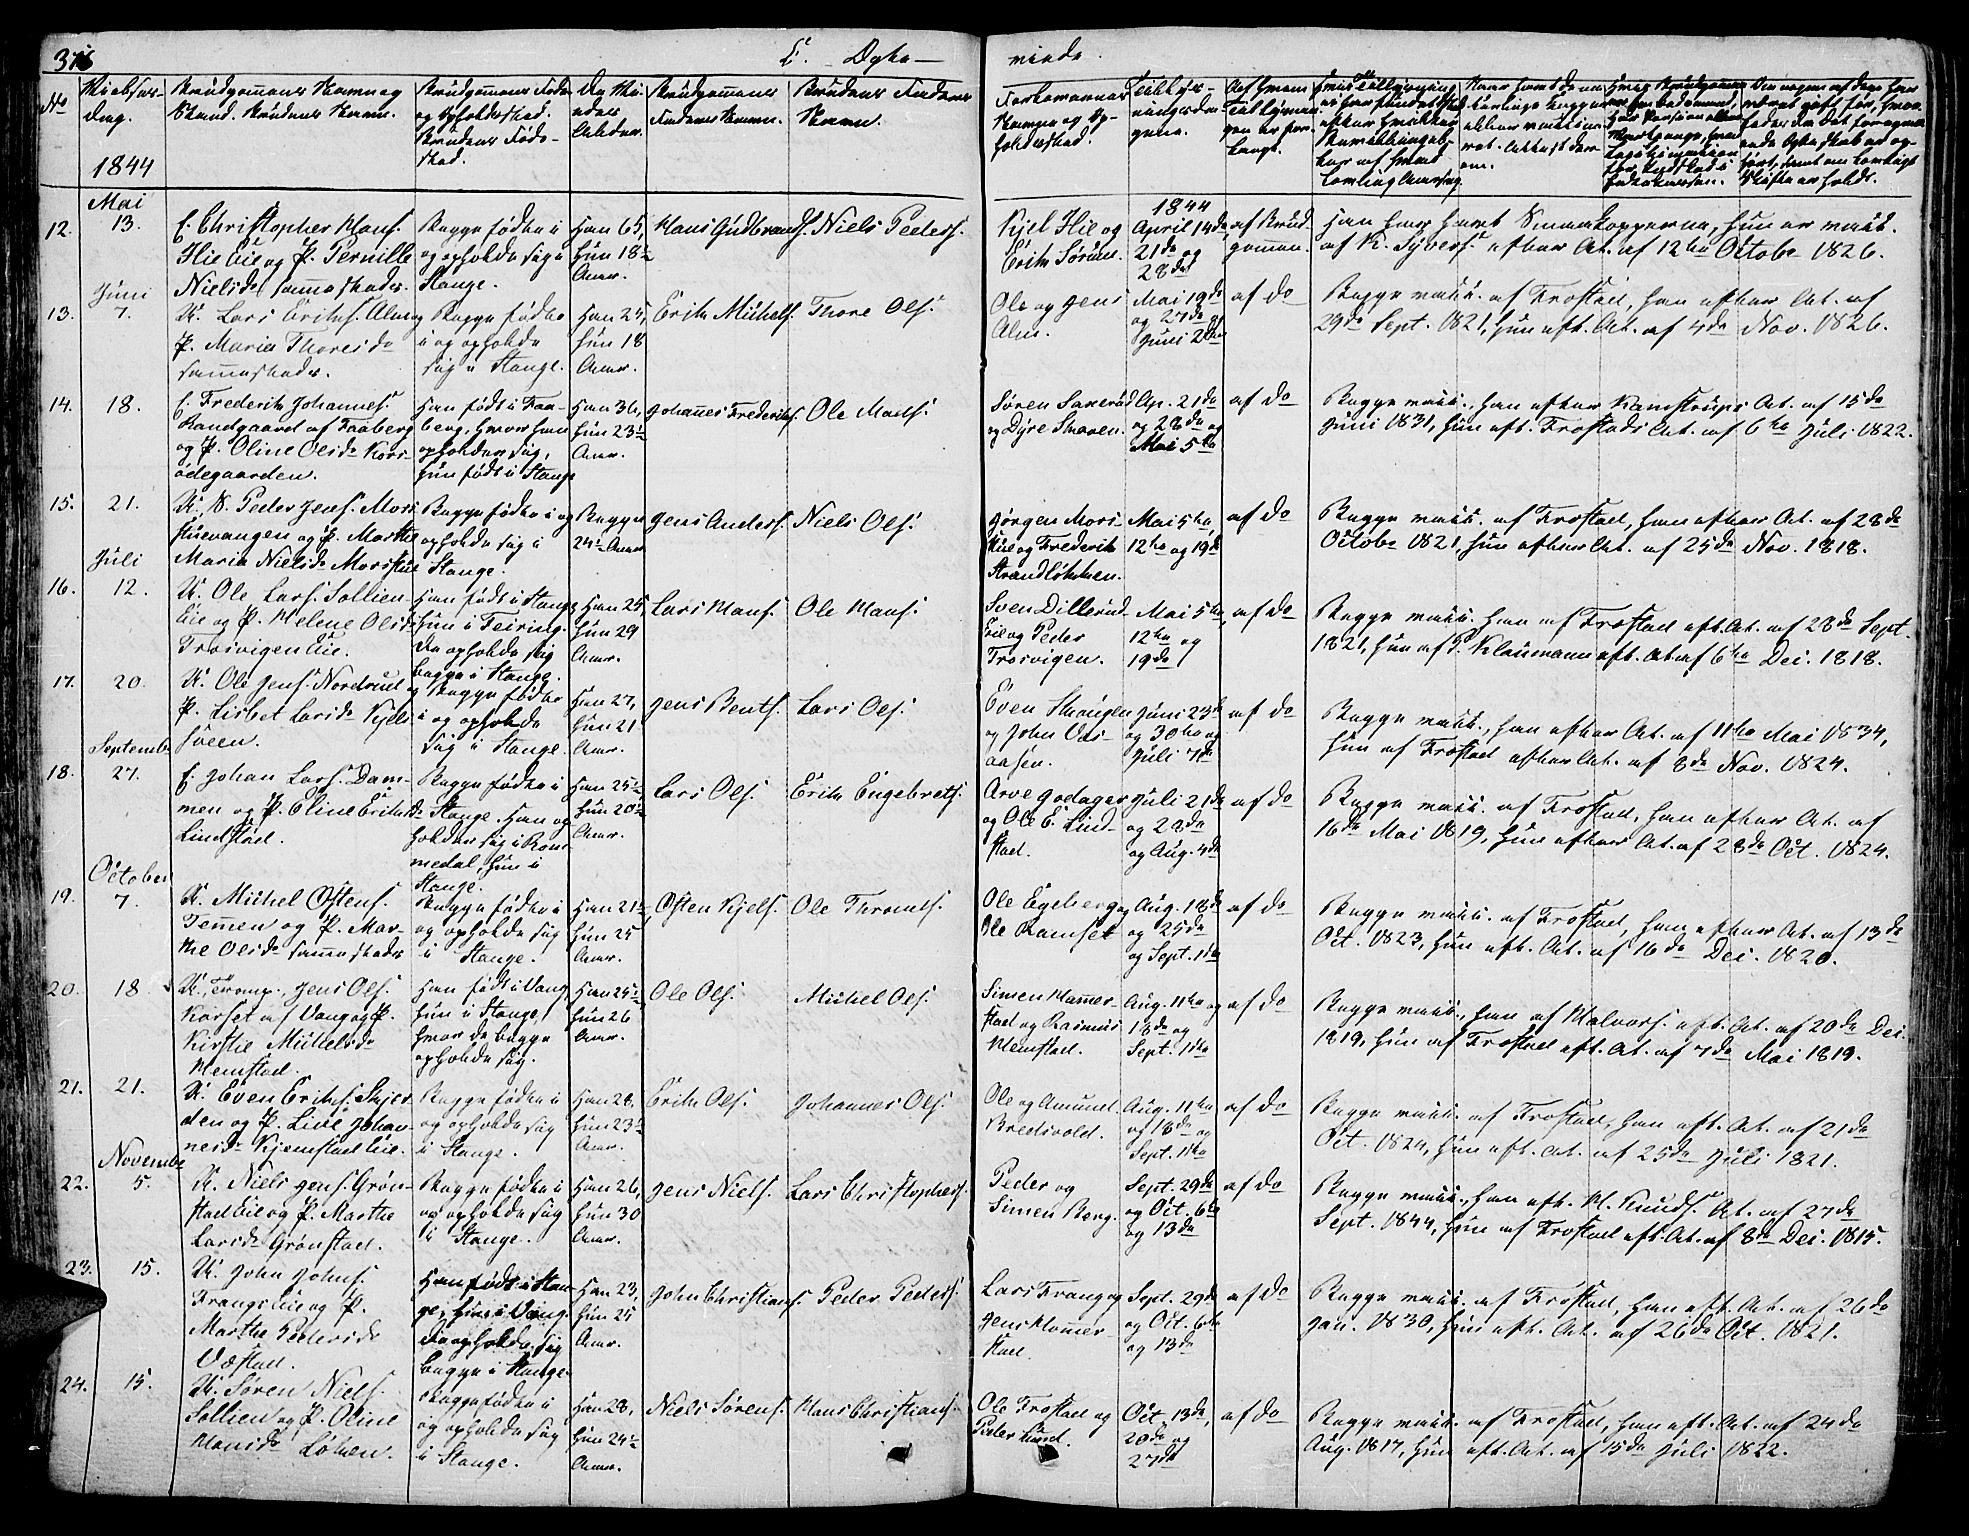 376 C. Ægte-
viede.
No
Vielses-
dag.
1844
Brudgommens Navn og
Stand. Brudens Navn.
Brudgommens Føde
og Opholdssted.
Brudens Føde-
sted.
Brudgommens
Faders Navn.
Brudens Faders
Navn.
Forlovernes
Navne og Op-
holdssted.
Mai
12. 13.
E. Christopher Hans.
Hie Eie og P. Pernille
Nielsdr sammesteds.
Begge fødte i
og opholde sig i
Stange.
Han 65,
Hun 18½
Aar.
Hans Gudbrands.
Niels Peders.
Kjel Hie og
Erik Sørum.
1844
April 14de
21de og
28de
af Brud-
gommen.
Han har havt Smaakopperne, hun er vacc.
af K. Syvers. efter At. af 12te Octobr 1826.
Juni
13. 7.
U. Lars Eriks. Alm og
P. Maria Thoresdr
sammesteds.
Begge fødte
i og opholde
sig i Stange.
Han 25,
Hun 18
Aar.
Erik Mickels.
Thore Ols.
Ole og Jens
Alm.
Mai 19de
og 27de og
Juni 2den
af do
Begge vacc. af Frostad, han efter At. af
29de Sept. 1821, hun eft. At. af 4de Nov. 1826.
14. 18.
E. Frederik Johannes.
Randgaard af Faaberg
og P. Oline Olsdr Kors-
ødegaarden.
Han født i Faa-
berg, hvor han
opholder sig,
hun født i Stange
Han 36,
Hun 23½
Aar.
Johannes Frederiks.
Ole Mads.
Søren Saxerud
og Dyre Skaren.
Ap. 21de
og 28de og
Mai 5te
af do
Begge vacc., han efter Kamstrups At. af 15de
Juni 1831, hun eft. Frostads At. af 6te Juli 1822.
15. 21.
U. N. Peder Jens. Mors
stuevangen og P. Marthe
Maria Nielsdr Morstue
Begge fødte i og
opholde sig i
Stange.
Begge
24½ Aar.
Jens Anders.
Niels Ols.
Jørgen Mors-
stue og Frederik
Strandløkken.
Mai 5te,
12te og 19de
af do
Begge vacc. af Frostad, han efter At. af 28de
Octobr 1821, hun efter At. af 25de Nov. 1818.
Juli
16. 12.
U. Ole Lars. Sollien-
Eie og P. Helene Olsdr
Trosvigen Eie.
Han født i Stange
Hun i Feiring.
De opholde sig
begge i Stange.
Han 25,
Hun 29
Aar.
Lars Hans.
Ole Hans.
Sven Dillerud-
Eie og Peder
Trosvigen.
Mai 5te,
12te og
19de
af do
Begge vacc. Han af Frostad eft. At. af 28de Sept.
1821, hun af P. Klaumann eft. At. af 6te Dec. 1818.
17. 20.
U. Ole Jens. Nordsuel og
P. Lisbet Larsdr Kjels-
sveen.
Begge fødte
i og opholde
sig i Stange.
Han 27,
Hun 21
Aar.
Jens Bents.
Lars Ols.
Even Skougen
og John Ous-
aasen.
Juni 23de
og 30te og
Juli 7de
af do
Begge vacc., han efter At. af 11te Mai 1834,
hun af Frostad efter At. af 8de Nov. 1824.
Septembr
18. 27.
E. Johan Lars. Dam-
men og P. Eline Eriksdr
Lindstad.
Begge fødte i
Stange. Han op-
holder sig i Rom-
medal, hun i
Stange.
Han 25½
Hun 20½
Aar.
Lars Ols.
Erik Engebrets.
Arve Godager
og Ole E. Lind-
stad.
Juli 21de
og 28de
og Aug. 4de
af do
Begge vacc. af Frostad, han efter At. af
16de Mai 1819, hun efter At. af 28de Oct. 1824.
October
19. 7.
U. Mickel Østens.
Temmen og P. Mar-
the Olsdr sammesteds
Begge fødte i
og opholde sig
i Stange.
Han 21½
Hun 25
Aar.
Østen Kjels.
Ole Throns.
Ole Egeberg og
Ole Ramset
Aug. 18de
og 25de
og Sept. 1ste
af do
Begge vacc. af Frostad, han efter At. af 13de
Oct. 1823, hun eft. At. af 16de Dec. 1820.
20. 18.
U. Jens Ols.
Korset af Vang og P.
Kirstie Mickelsdr
Hemstad.
Han født i Vang,
Hun i Stange,
hvor de begge
opholde sig.
Han 25½
Hun 26
Aar.
Ole Ols.
Mickel Ols.
Simen Hammer-
stad og Rasmus
Hemstad.
Aug. 11te og
18de og
Sept. 1ste
af do
Begge vacc., han af Halvors. eft. At. af 20de Dec.
1819, hun af Frostad eft. At. af 7de Mai 1819.
21. 21.
U. Even Eriks. Skjer-
den og P. Live Johan-
nesdr Kjemstad Eie.
Begge fødte i
og opholde sig
i Stange.
Han 28,
Hun 23½
Aar.
Erik Ols.
Johannes Ols.
Ole og Amund
Bredvold.
Aug. 11te
og 18de og
Sept. 1ste
af do
Begge vacc. af Frostad, han eft. At. af 21de
Oct. 1824, hun eft. At. af 25de Juli 1821.
Novembr
22. 5.
U. Niels Jens. Grøn-
stad Eie og P. Marthe
Larsdr Grønstad.
Begge fødte i
og opholde sig
i Stange.
Han 26,
Hun 30
Aar.
Jens Niels.
Lars Christophers.
Peder og
Simen Berg.
Sept. 29de
og Oct. 6te
og 13de
af do
Begge vacc., han eft. M. Knuds. At. af 27de
Sept. 1844, hun af Frostad eft. At. af 8de Dec. 1815.
23. 15.
U. John Johns.
Frangs Eie og P.
Marthe Pedersdr
Væstad.
Han født i Stan-
ge, Hun i Vang.
De opholde sig
begge i Stange.
Han 23,
Hun 25
Aar.
John Christians.
Peder Peders.
Lars Frang og
Jens Hammer-
stad.
Sept. 29de
og Oct. 6te
og 13de
af do
Begge vacc. af Frostad, han eft. At. af 26de
Jan. 1830, hun eft. At. af 26de Oct. 1821.
24. 15.
U. Søren Niels.
Sollien og P. Oline
Hansdr Løken.
Begge fødte i
og opholde sig
i Stange.
Han 28,
Hun 24½
Aar.
Niels Sørens.
Hans Christians.
Ole Frostad og
Peder Lund.
Oct. 13de,
20de og
27de
af do
Begge vacc. af Frostad, han eft. At. af 24de
Aug. 1817, hun eft. At. af 15de Juli 1822.